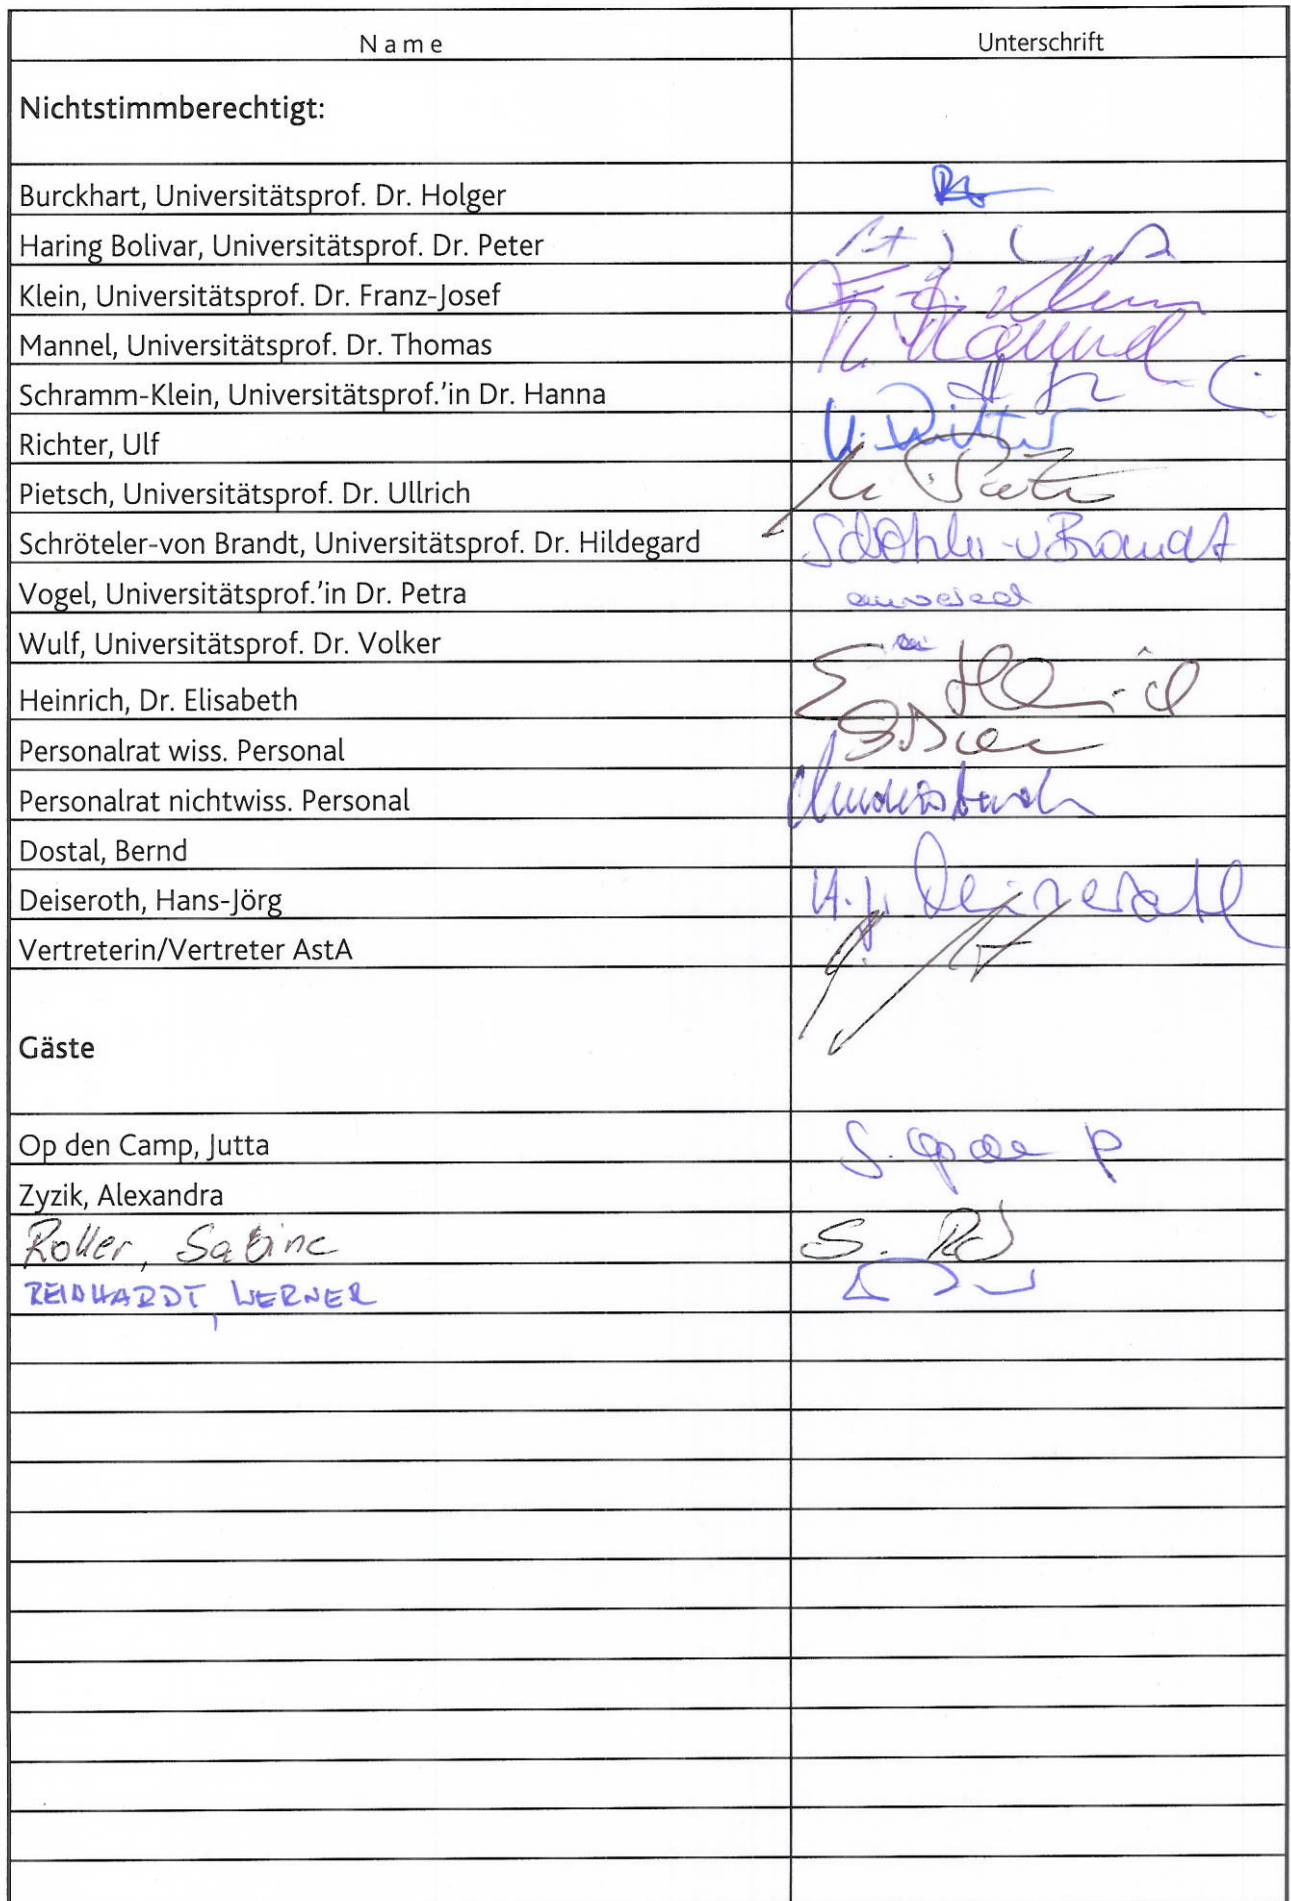 Name Unterschrift
Nichtstimmberechtigt:
Burckhart, Universitätsprof. Dr. Holger
Haring Bolivar, Universitätsprof. Dr. Peter
Klein, Universitätsprof. Dr. Franz-Josef F.-J. Klein
Mannel, Universitätsprof. Dr. Thomas T. Mannel
Schramm-Klein, Universitätsprof.'in Dr. Hanna
Richter, Ulf U. Richter
Pietsch, Universitätsprof. Dr. Ullrich
Schröteler-von Brandt, Universitätsprof. Dr. Hildegard
Vogel, Universitätsprof.'in Dr. Petra anwesend
Wulf, Universitätsprof. Dr. Volker
Heinrich, Dr. Elisabeth
Personalrat wiss. Personal
Personalrat nichtwiss. Personal
Dostal, Bernd
Deiseroth, Hans-Jörg H.J. Deiseroth
Vertreterin/Vertreter AstA
Gäste
Op den Camp, Jutta
Zyzik, Alexandra
Roller, Sabine
REINHARDT, WERNER